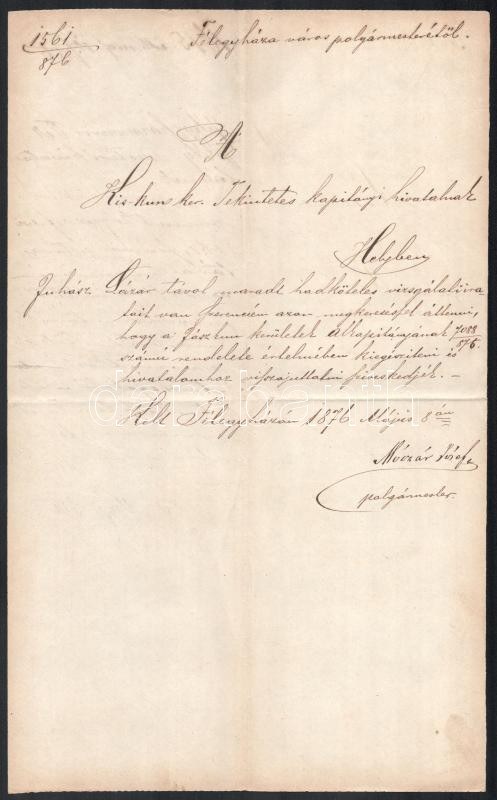 1561
876
Félegyháza város polgármesterétől.
A
Kis-kun ker. Tekintetes kapitányi hivatalnak
Helyben
Juhász Lázár távol maradt hadköteles vizsgálati ira-
tait van szerencsém azon megkereséssel áttenni,
hogy a Jászkun kerületek alkapitányának 7088
876.
számú rendelete értelmében kiegészíteni és
hivatalomhoz visszajuttatni sziveskedjék. –
Kelt Félegyházán 1876 Május 8án
Móczár József
polgármester.